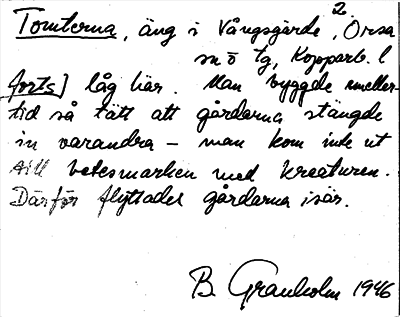 2.
Tomterna, äng i Vångsgärde, Orsa
sn ö tg, Kopparb. l
forts] låg här. Man byggde emeller-
tid så tätt att gårdarna stängde
in varandra – man kom inte ut
till betesmarken med kreaturen.
Därför flyttades gårdarna isär.
B. Granholm 1946